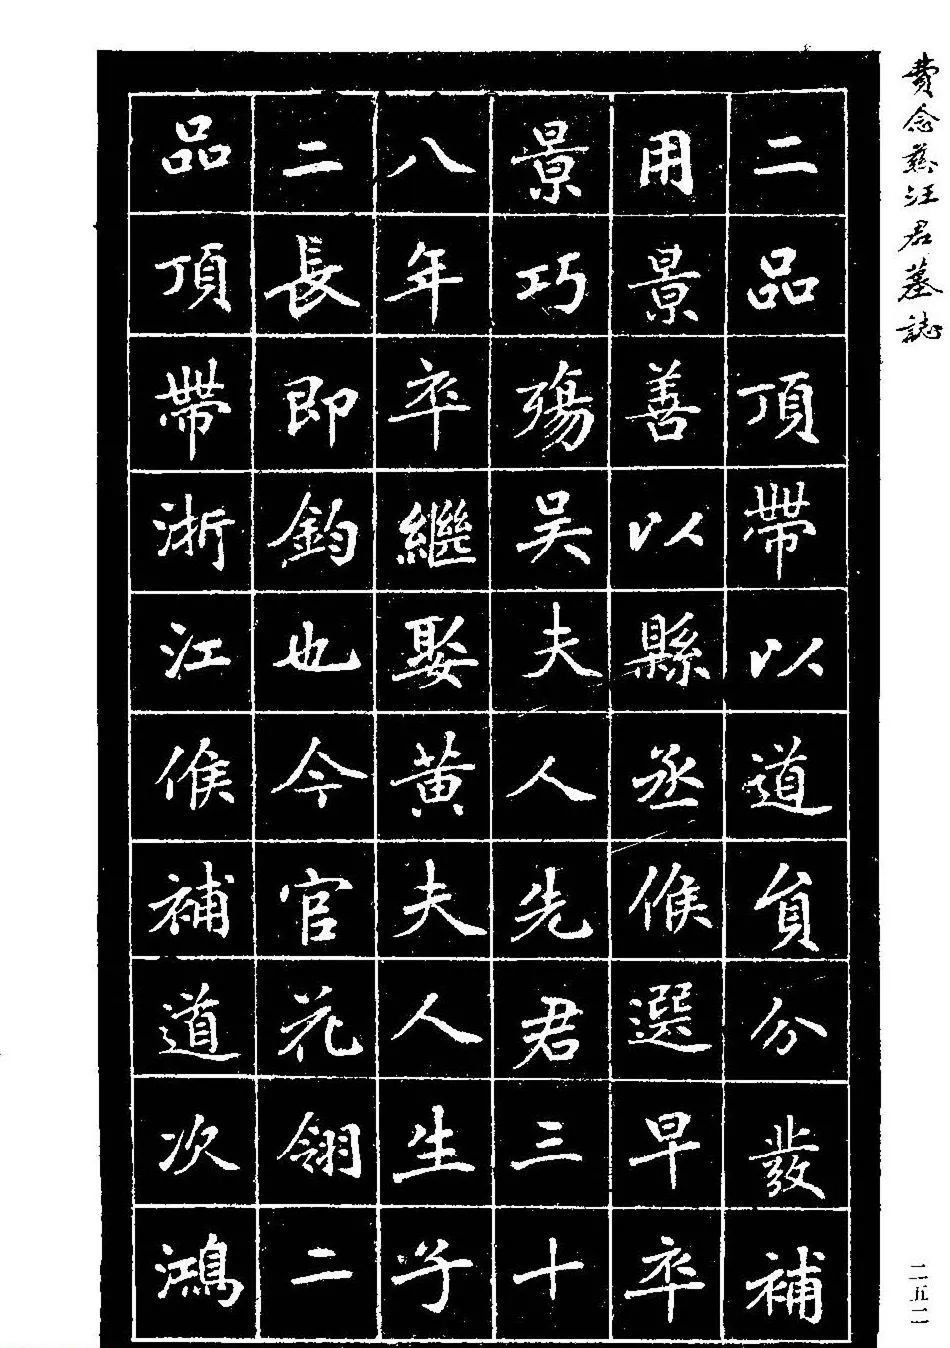 費念慈汪君墓誌
二品頂帶以道員分發補
用景善以縣丞候選早卒
景巧殤吴夫人先君三十
八年卒繼娶黃夫人生子
二長即鈞也今官花翎二
品頂帶浙江候補道次鴻
二五二